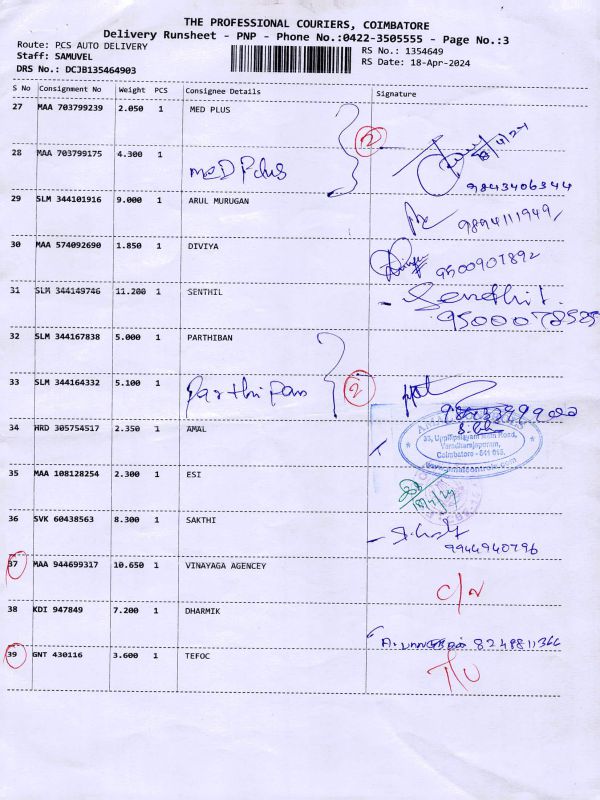 THE PROFESSIONAL COURIERS, COIMBATORE
Delivery Runsheet - PNP - Phone No.:0422-3505555 - Page No.:3
Route: PCS AUTO DELIVERY
Staff: SAMUVEL
DRS No.: DCJB135464903
RS No.: 1354649
RS Date: 18-Apr-2024
S No Consignment No Weight PCS Consignee Details Signature
27 MAA 703799239 2.050 1 MED PLUS
2
28 MAA 703799175 4.300 1 Med Plus
9843406344
29 SLM 344101916 9.000 1 ARUL MURUGAN 9894111949
30 MAA 574092690 1.850 1 DIVIYA 9500907892
31 SLM 344149746 11.200 1 SENTHIL Sendhil.
32 SLM 344167838 5.000 1 PARTHIBAN
33 SLM 344164332 5.100 1 2
34 HRD 305754517 2.350 1 AMAL
33, Uppilipalayam Main Road,
Varadharajapuram,
Coimbatore - 641 015.
35 MAA 108128254 2.300 1 ESI
36 SVK 60438563 8.300 1 SAKTHI
9944940796
37 MAA 944699317 10.650 1 VINAYAGA AGENCEY
38 KDI 947849 7.200 1 DHARMIK 8249811366
39 GNT 430116 3.600 1 TEFOC